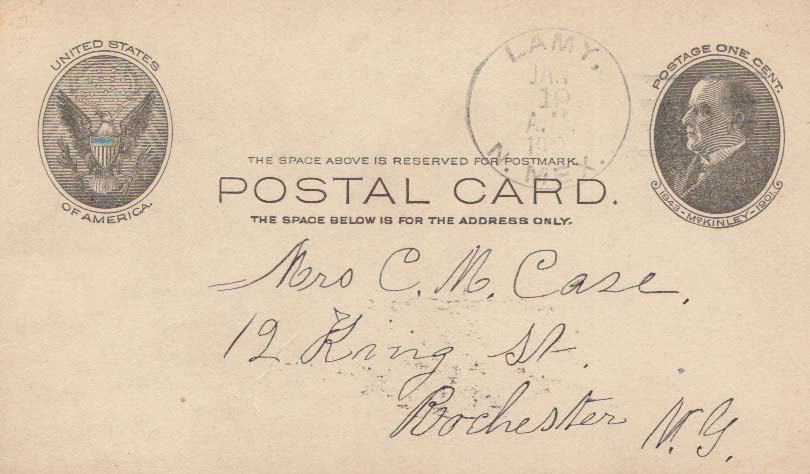 UNITED STATES
OF AMERICA.
LAMY,
JAN
A.
N. MEX.
POSTAGE ONE CENT.
1843-McKINLEY-1901.
THE SPACE ABOVE IS RESERVED FOR POSTMARK.
POSTAL CARD.
THE SPACE BELOW IS FOR THE ADDRESS ONLY.
Mrs C. M. Case,
12 King St.
Rochester N.Y.